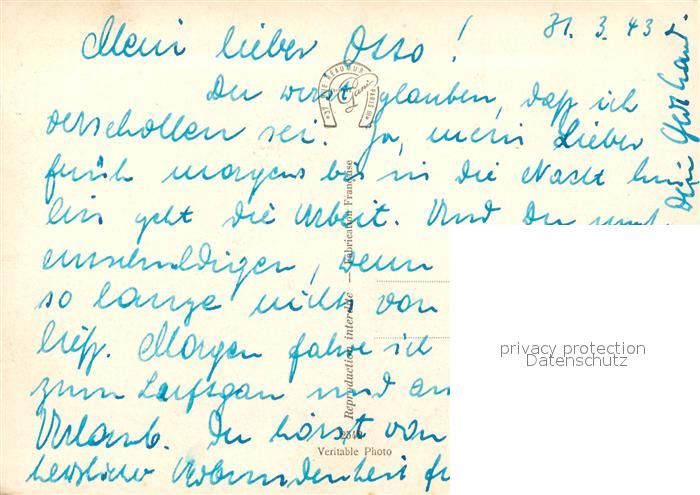 31. 3. 43
Mein lieber Otto!
Du wirst glauben, daß ich
verschollen sei. Ja, mein Lieber
früh morgens bis in die Nacht hin
ein geht die Arbeit. Und Du mußt
entschuldigen, wenn
so lange nichts von
ließ. Morgen fahre ich
zum Luftgau und
Urlaub. Du hörst von
herzlicher Verbundenheit
Dein
37 RUE REAUMUR
PARIS
Reproduction interdite — Fabrication Française
Veritable Photo
privacy protection
Datenschutz